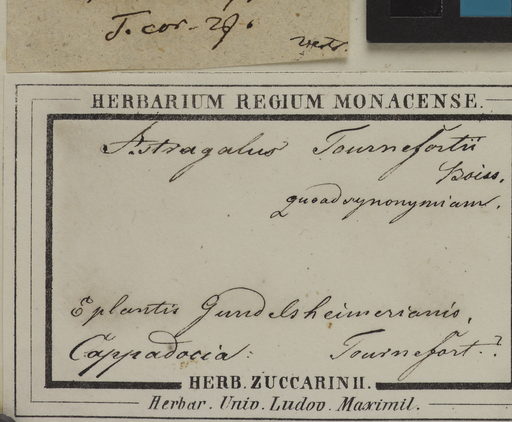 T. cor. 29.
HERBARIUM REGIUM MONACENSE.
Astragalus Tournefortii
Boiss.
quoad synonymiam.
E plantis Gundelsheimerianis.
Cappadocia. Tournefort.?
HERB. ZUCCARINII.
Herbar. Univ. Ludov. Maximil.